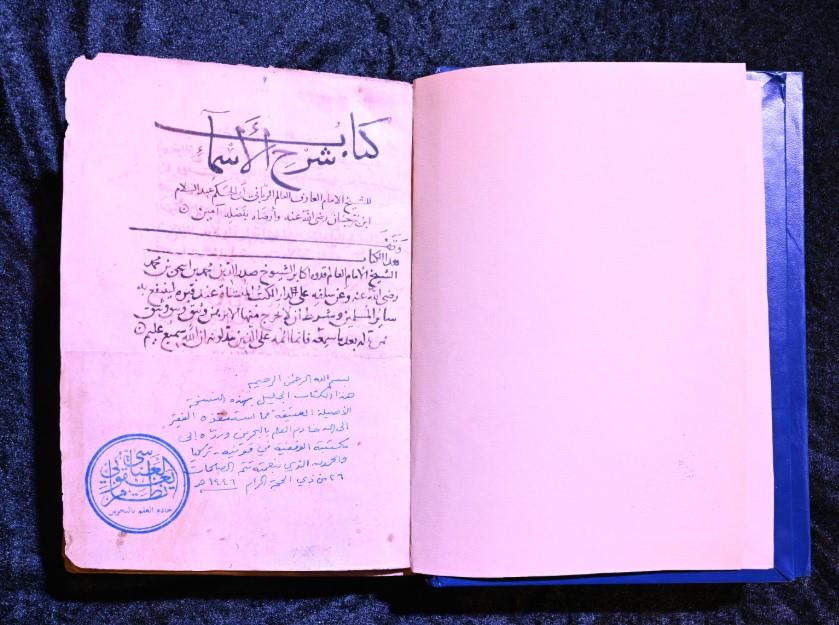 كتاب شرح الأسماء
للشيخ الامام العارف العالم الرباني أبي الحكم عبد السلام
ابن برجان رضى الله عنه وأرضاه بفضله آمين
وقف
هذا الكتاب
الشيخ الامام العالم قدوة اكابر الشيوخ صدر الدين محمد بن اسحق بن محمد
رضى الله عنه وعن سلفه على دار الكتب المنشاة عند قبره لينتفع به
ساير المسلمين وشرط ان لا يخرج منها الا برهن وثيق
فمن بدله بعد ما سمعه فانما اثمه على الذين يبدلونه ان الله سميع عليم
بسم الله الرحمن الرحيم
هذا الكتاب الجليل بهذه النسخة
الأصيلة العتيقة مما استنقذه الفقير
إلى الله خادم العلم بالبحرين وردّه إلى
مكتبته الوقفية في قونية - تركيا
والحمد لله الذي بنعمته تتم الصالحات
٢٦ من ذي الحجة الحرام ١٤٤٦ هـ
نظام يعقوبي العباسي
خادم العلم بالبحرين